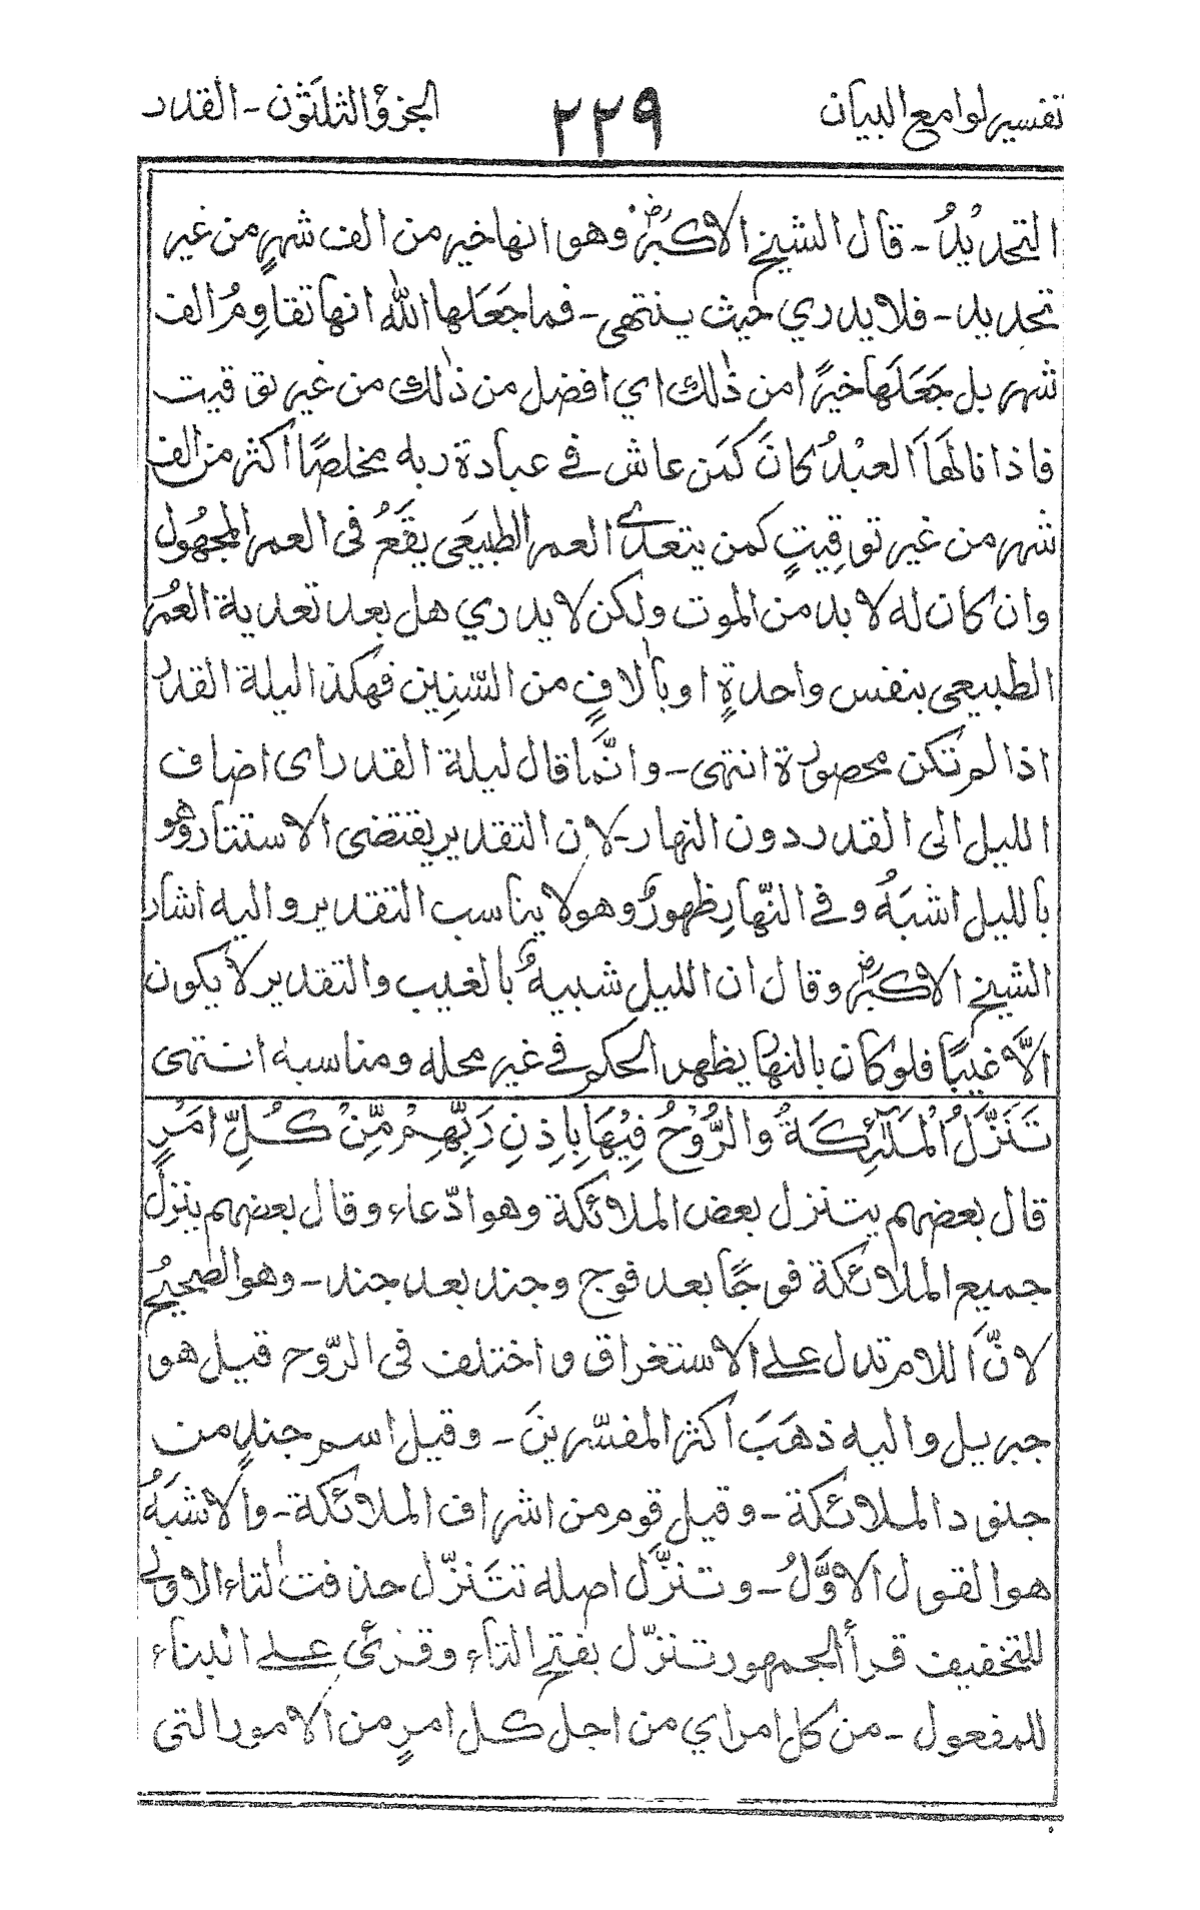 تفسير لوامع البيان ٢٢٩ الجزؤ الثلثون - القدر
التحديدُ - قال الشيخ الاكبرؓ وهو انها خير من الف شهرٍ من غير
تحديد - فلا يدري حيث ينتهى - فما جَعَلها اللّٰه انها تقاوِمُ الف
شهر بل جَعَلَها خيرًا من ذٰلك اي افضل من ذٰلك من غير توقيت
فاذا نالهَا العبْدُ كانَ كمَن عاش في عبادة ربه مخلصًا اكثر من الف
شهر من غير توقِيتٍ كمن يتعدى العمر الطبيعَى يقَعُ فى العمر المجهُول
وان كان له لا بد من الموت ولكن لا يدري هل بعد تعدية العمُر
الطبيعى بنفس واحدةٍ او بآلافٍ من السّنِين فهكذا ليلة القدر
اذا لم تكن محصورة انتهى - وانّما قال ليلة القدر اى اضاف
الليل الى القدر دون النهار - لان التقدير يقتضى الاستتار وهو
بالليل اشبَهُ وفي النّهارِ ظهورٌ وهو لا يناسب التقدير واليه اشار
الشيخ الاكبرؓ وقال ان الليل شبيهٌ بالغيب والتقدير لا يكون
الَّا غيبًا فلو كان بالنهار يظهر الحكم في غير محله ومناسبه انتهى
تَنَزَّلُ الْمَلٰٓئِكَةُ والرُّوْحُ فِيْهَا بِاِذِنِ رَبِّهِمْ مِّنْ كُلِّ امْرٍ
قال بعضهم يتنزل بعض الملائكة وهو ادّعاء وقال بعضهم ينزل
جميع الملائكة فوجًا بعد فوج وجند بعد جند - وهو الصّحيحُ
لانّ اللام تدل على الاستغراق واختلف فى الرّوح قيل هو
جبريل واليه ذهَبَ اكثر المفسّرينَ - وقيل اسم جندٍ من
جنود الملائكة - وقيل قوم من اشراف الملائكة - والاشبَهُ
هو القول الاوَّلُ - وتنزَّل اصله تتَنزّل حذفت التاء الاولى
للتخفيف قرأ الجمهور تنزّل بفتح التاء وقرئ على البناء
للمفعول - من كل امر اي من اجل كل امرٍ من الامور التى